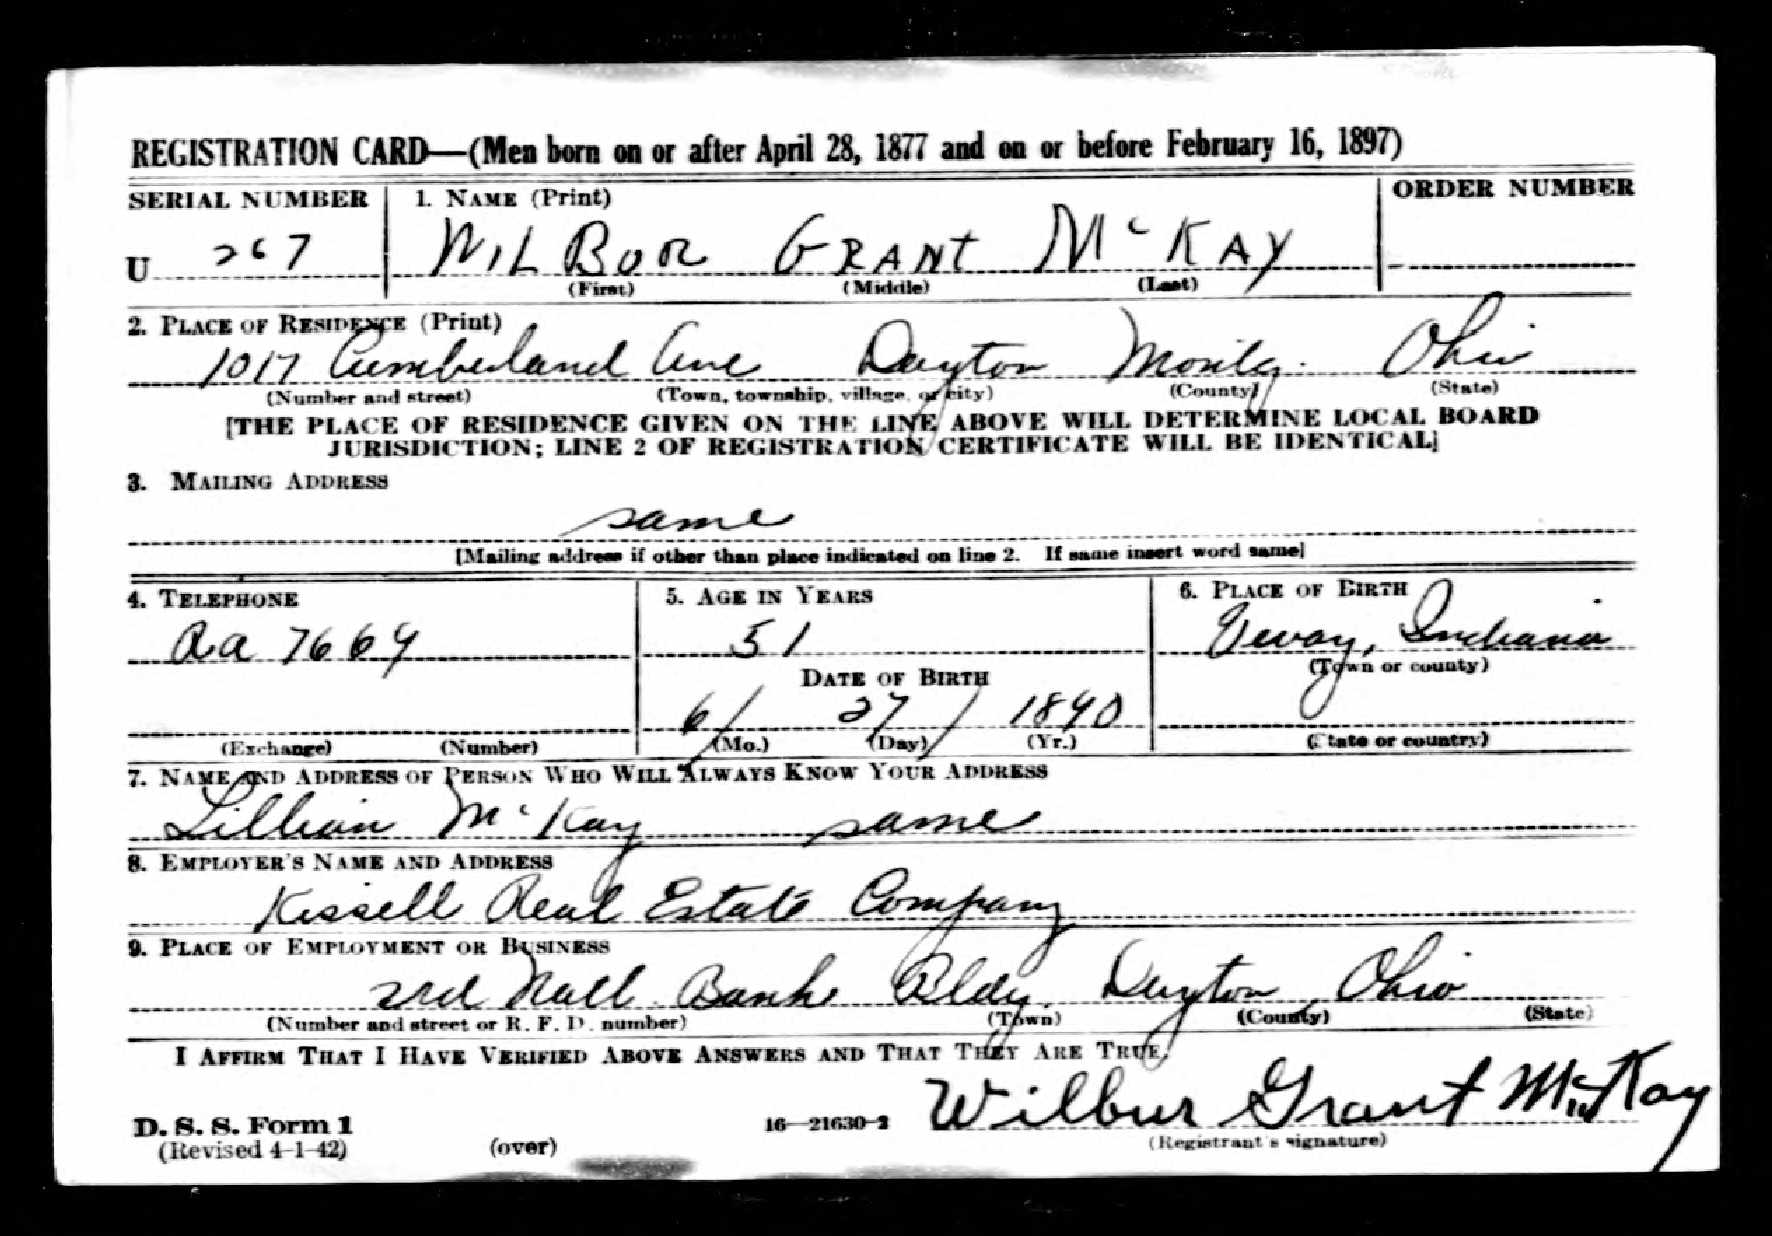 REGISTRATION CARD—(Men born on or after April 28, 1877 and on or before February 16, 1897)
SERIAL NUMBER 1. NAME (Print) ORDER NUMBER
U 267 WILBUR GRANT McKAY
(First) (Middle) (Last)
2. PLACE OF RESIDENCE (Print)
1017 Cumberland Ave Dayton Montg. Ohio
(Number and street) (Town, township, village, or city) (County) (State)
[THE PLACE OF RESIDENCE GIVEN ON THE LINE ABOVE WILL DETERMINE LOCAL BOARD
JURISDICTION; LINE 2 OF REGISTRATION CERTIFICATE WILL BE IDENTICAL]
3. MAILING ADDRESS
same
[Mailing address if other than place indicated on line 2. If same insert word same]
4. TELEPHONE 5. AGE IN YEARS 6. PLACE OF BIRTH
RA 7664 51 Vevay, Indiana
(Town or county)
DATE OF BIRTH
6/ 27/ 1890
(Exchange) (Number) (Mo.) (Day) (Yr.) (State or country)
7. NAME AND ADDRESS OF PERSON WHO WILL ALWAYS KNOW YOUR ADDRESS
Lillian McKay same
8. EMPLOYER'S NAME AND ADDRESS
Kissell Real Estate Company
9. PLACE OF EMPLOYMENT OR BUSINESS
3rd Natl Bank Bldg. Dayton, Ohio
(Number and street or R. F. D. number) (Town) (County) (State)
I AFFIRM THAT I HAVE VERIFIED ABOVE ANSWERS AND THAT THEY ARE TRUE.
Wilbur Grant McKay
D. S. S. Form 1 16—21630-2 (Registrant's signature)
(Revised 4-1-42) (over)